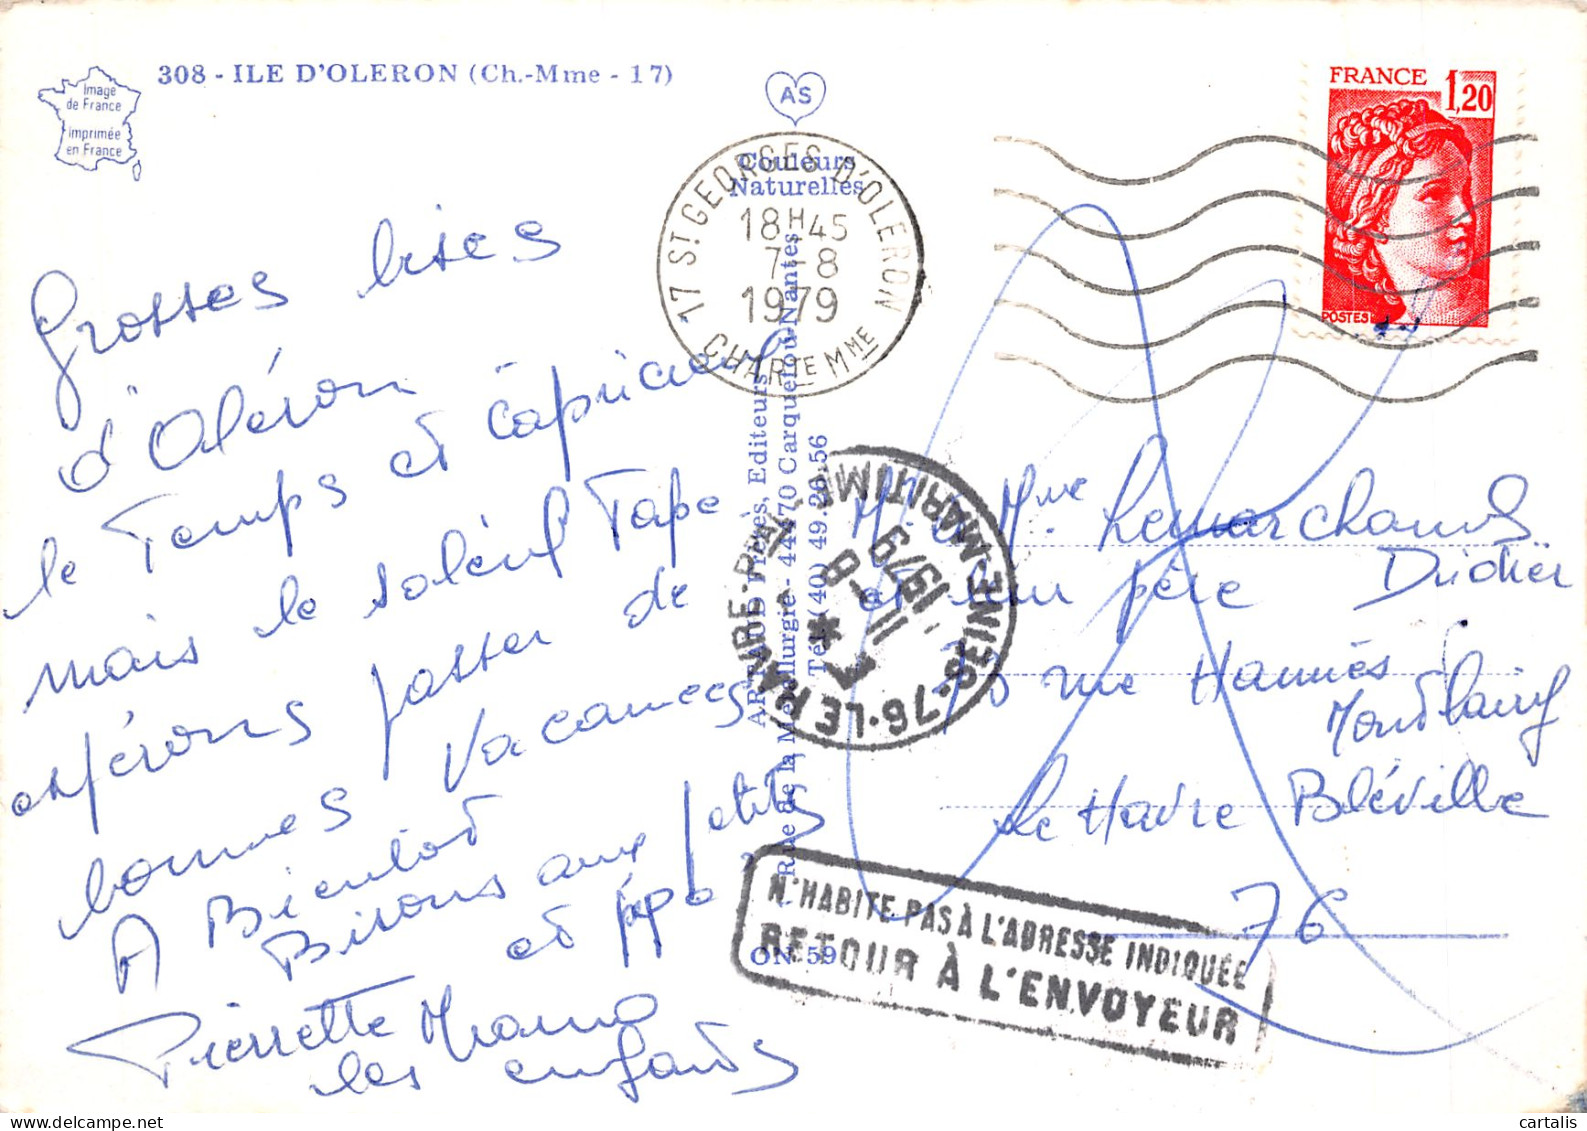 308 - ILE D'OLERON (Ch.-Mme - 17)
Image
de France
imprimée
en France
AS
Couleurs
Naturelles
FRANCE 1,20
POSTES
17 ST GEORGES D'OLERON
18H45
7-8
1979
CHARTE MME
Grosses bises
d'Oléron
le Temps est capricieux
mais le soleil Tape
espérons passer de
bonnes vacances
A Bientot
Bisous aux petits
et pépé
Pierrette
les enfants
M. & Mme Lemarchand
Didier
et leur père
rue
Le Havre Bléville
76
ARTAUD Frères, Editeurs
Rue de la Métallurgie - 44470 Carquefou-Nantes
Tél. (40) 49.26.56
76-LE HAVRE-PAL
SEINE-MARITIME
11-8
1979
N'HABITE PAS À L'ADRESSE INDIQUÉE
RETOUR À L'ENVOYEUR
ON 59
cartalis